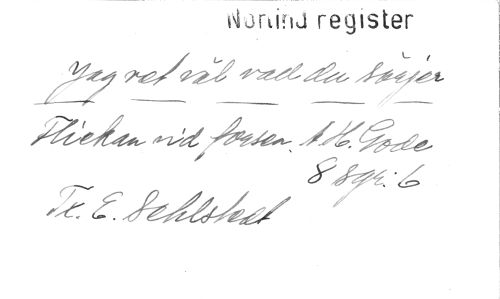 Norlind register
Jag vet väl vad du sörjer
Flickan vid forsen. A H. Gode
8 sgr: 6
Tr. E. Sehlstedt